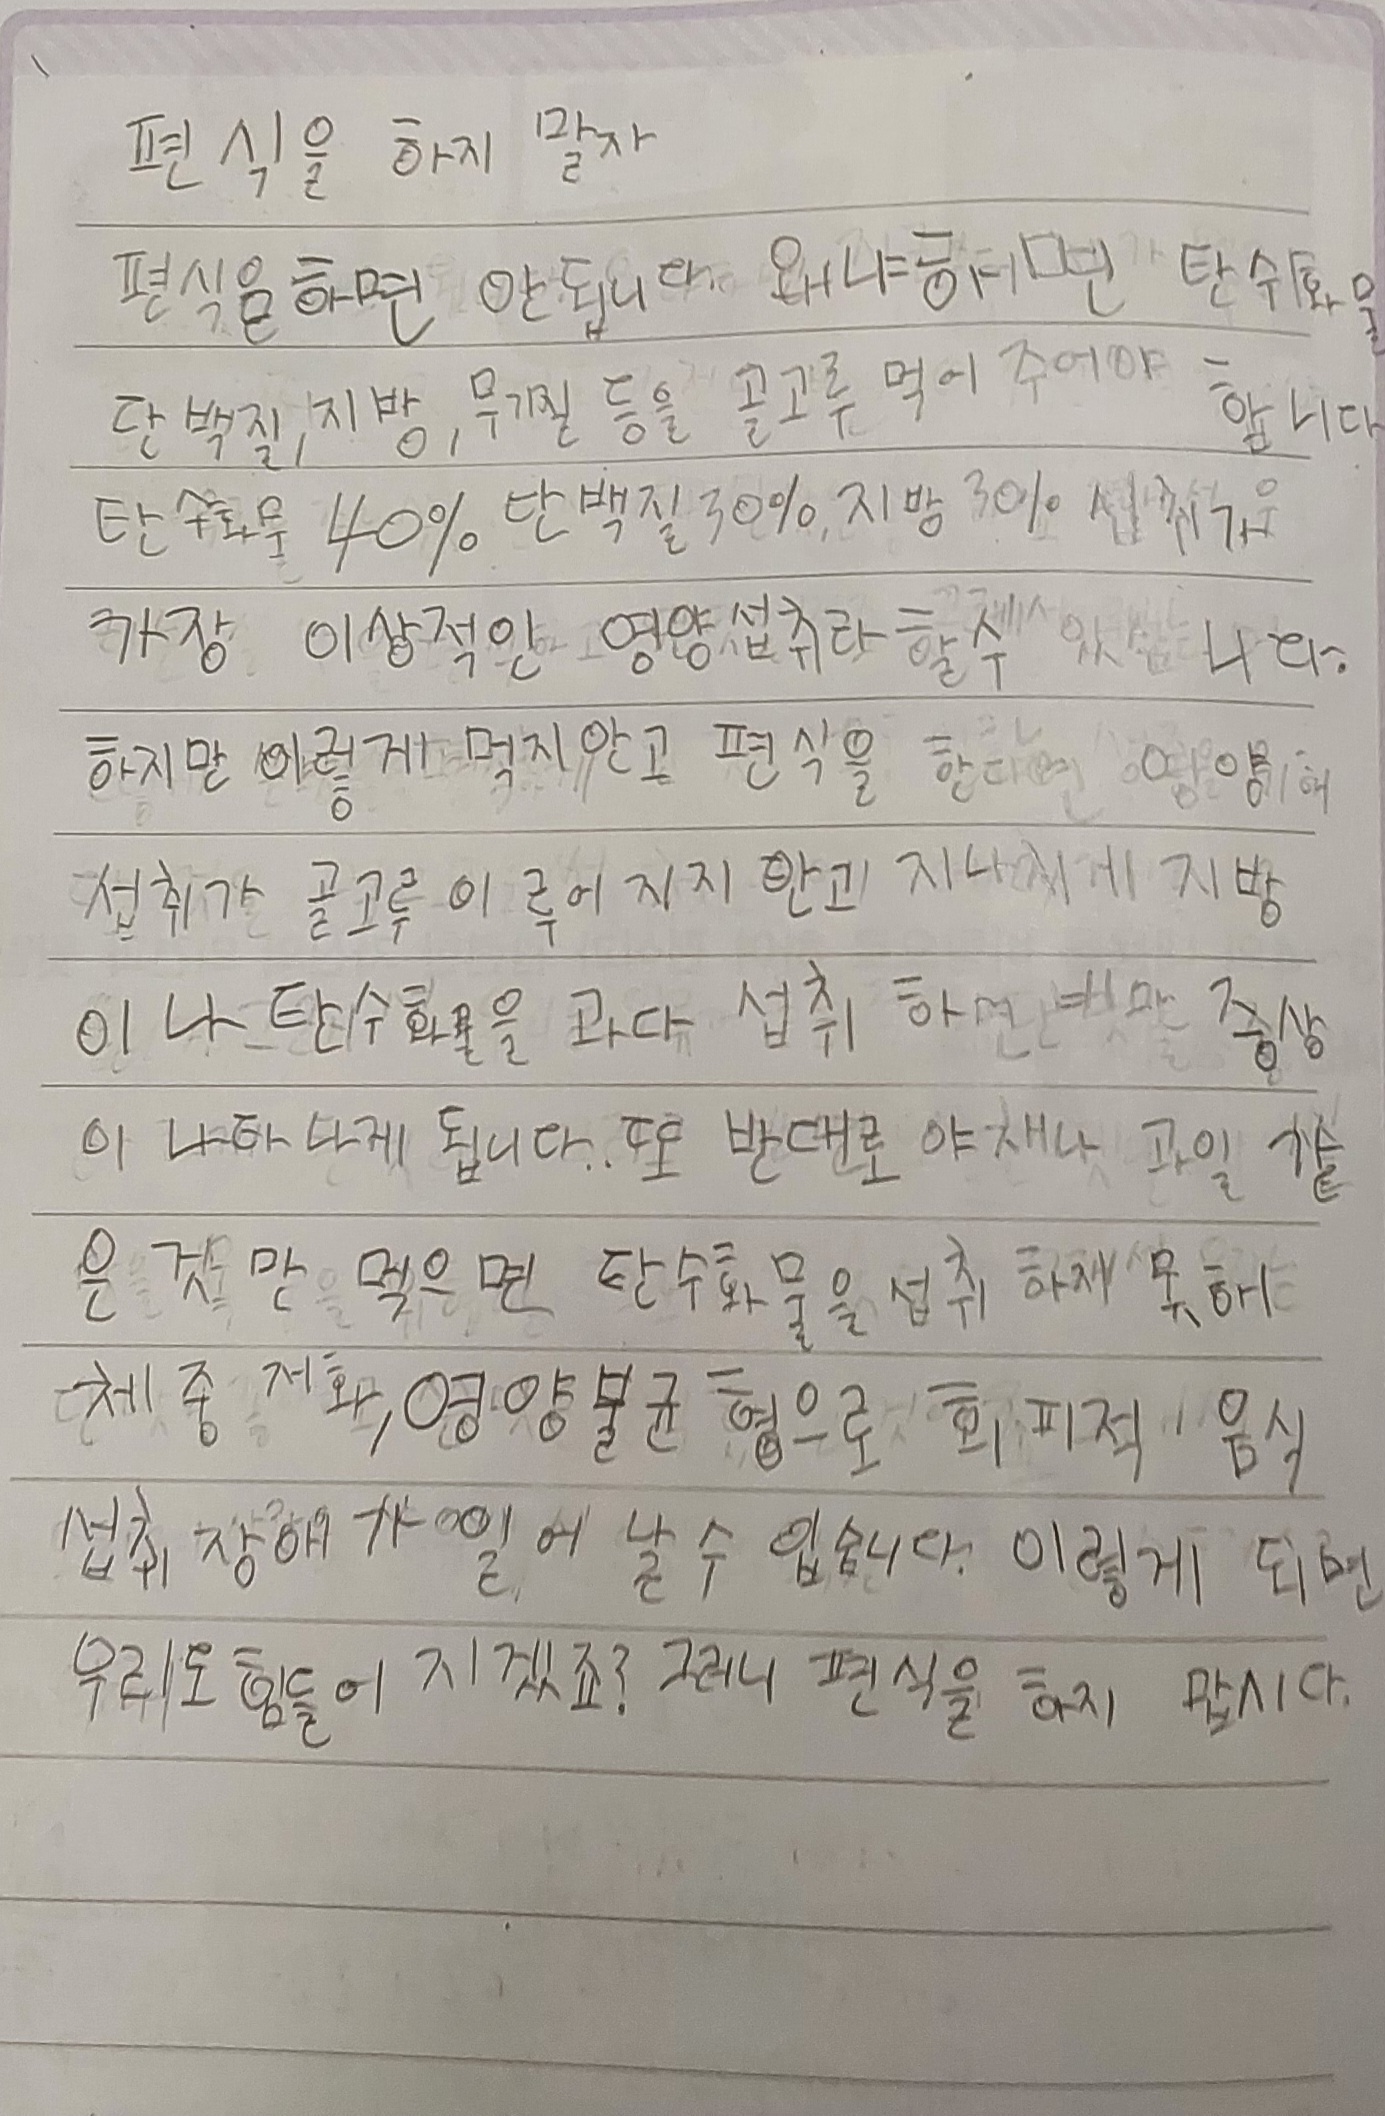 편식을 하지 말자
편식을하면 안됩니다. 왜냐하면 탄수화물
단백질,지방,무기질 등을 골고루 먹어 주어야 합니다
탄수화물 40% 단백질30%,지방 30% 섭취가
가장 이상적인 영양섭취라 할수 있습니다.
하지만 이렇게 먹지안고 편식을 한다면
섭취가 골고루 이루어 지지 안고 지나치게 지방
이나 탄수화물을 과다 섭취 하면 증상
이 나타나게 됩니다. 또 반대로 야채나 과일 같
은 것만 먹으면 탄수화물을 섭취 하지 못해
체중 저하,영양불균형으로 회피적 음식
섭취 장애가 일어 날수 있습니다. 이렇게 되면
우리도 힘들어 지겠죠? 그러니 편식을 하지 맙시다.